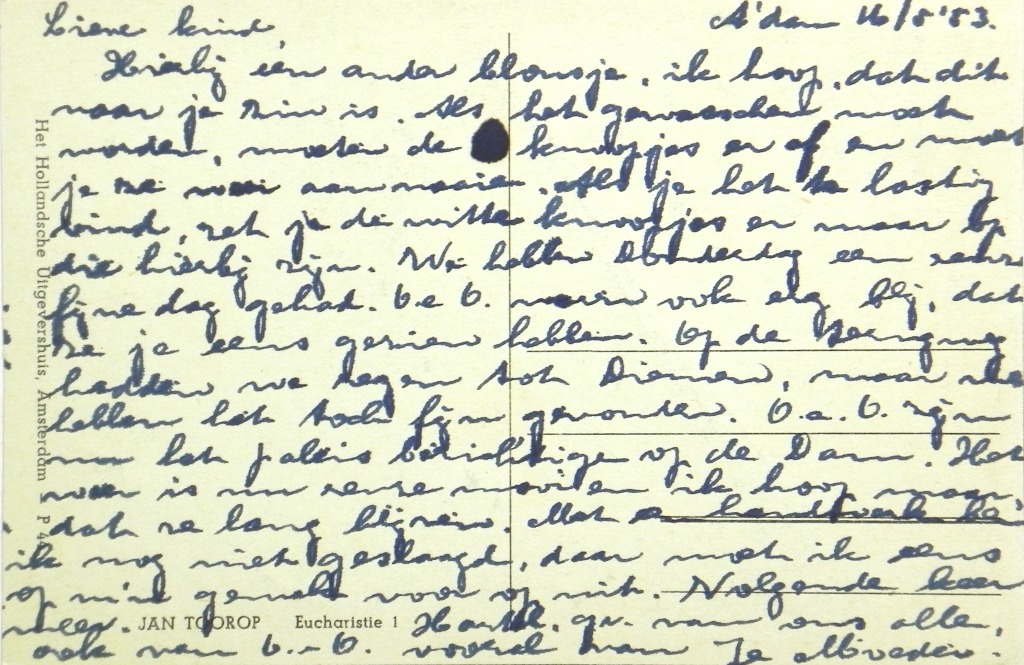 A'dam 16/5'53.
Lieve kind,
Hierbij een ander blousje, ik hoop, dat dit
naar je zin is. Als het gewasschen moet
worden, moeten de knoopjes er af en moet
je ze weer aannaaien. Als je het te lastig
vind, zet je de witte knoopjes er maar op
die hierbij zijn. We hebben Donderdag een
fijne dag gehad. O. e O. waren ook erg blij, dat
ze je eens gezien hebben. Op de terugweg
hadden we regen tot Diemen, maar we
hebben het toch fijn gevonden. O. e. O. zijn
nu het paleis bezichtigen op de Dam. Het
weer is nu mooi en ik hoop maar,
dat ze lang blijven. Met handwerk ben
ik nog niet geslaagd, daar moet ik eens
op m'n gemak voor op uit. Volgende keer
meer. Hartel. gr. van ons alle,
ook van O. - O. vooral van Je Moeder.
JAN TOOROP Eucharistie 1
Het Hollandsche Uitgevershuis, Amsterdam